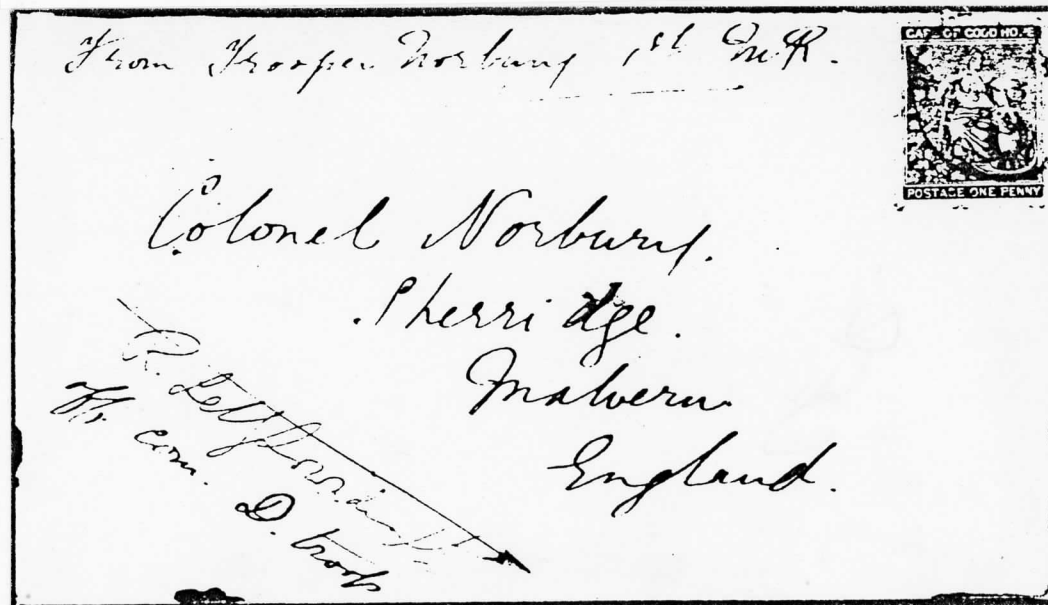 From Trooper Norbury 1st M.R.
CAPE OF GOOD HOPE
POSTAGE ONE PENNY
Colonel Norbury.
Sherridge.
Malvern
England.
R.
com. D. troop